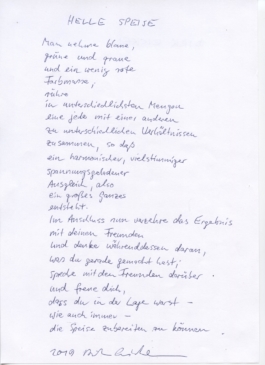 HELLE SPEISE
Man nehme blaue,
grüne und graue
und ein wenig rote
Farbmasse,
rühre
in unterschiedlichsten Mengen
eine jede mit einer anderen
zu unterschiedlichen Verhältnissen
zusammen, so daß
ein harmonischer, vielstimmiger
spannungsgeladener
Ausgleich, also
ein großes Ganzes
entsteht.
Im Anschluss nun verzehre das Ergebnis
mit deinen Freunden
und denke währenddessen daran,
was du gerade gemacht hast;
spreche mit den Freunden darüber
und freue dich,
dass du in der Lage warst –
wie auch immer –
die Speise zubereiten zu können.
2019